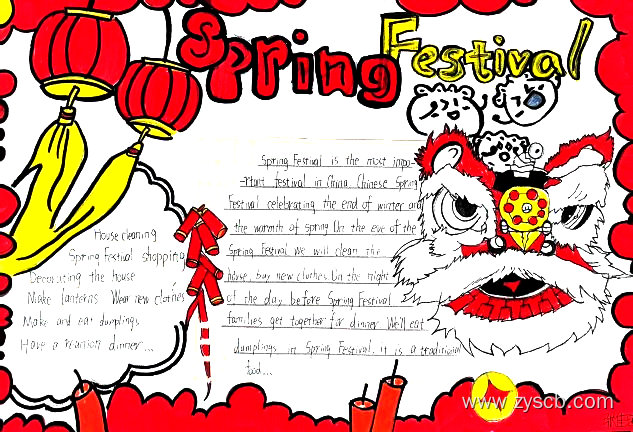 Spring Festival
Spring Festival is the most impo-
-rtant festival in China. Chinese Spring
Festival celebrating the end of winter and
the warmth of spring. On the eve of the
Spring Festival We will clean the
house, buy new clothes. On the night
of the day before Spring Festival
families get together for dinner. We'll eat
dumplings in Spring Festival. it is a traditional
food...
House cleaning
Spring Festival shopping
Decorating the house
Make lanterns Wear new clothes
Make and eat dumplings
Have a reunion dinner...
www.zyscb.com